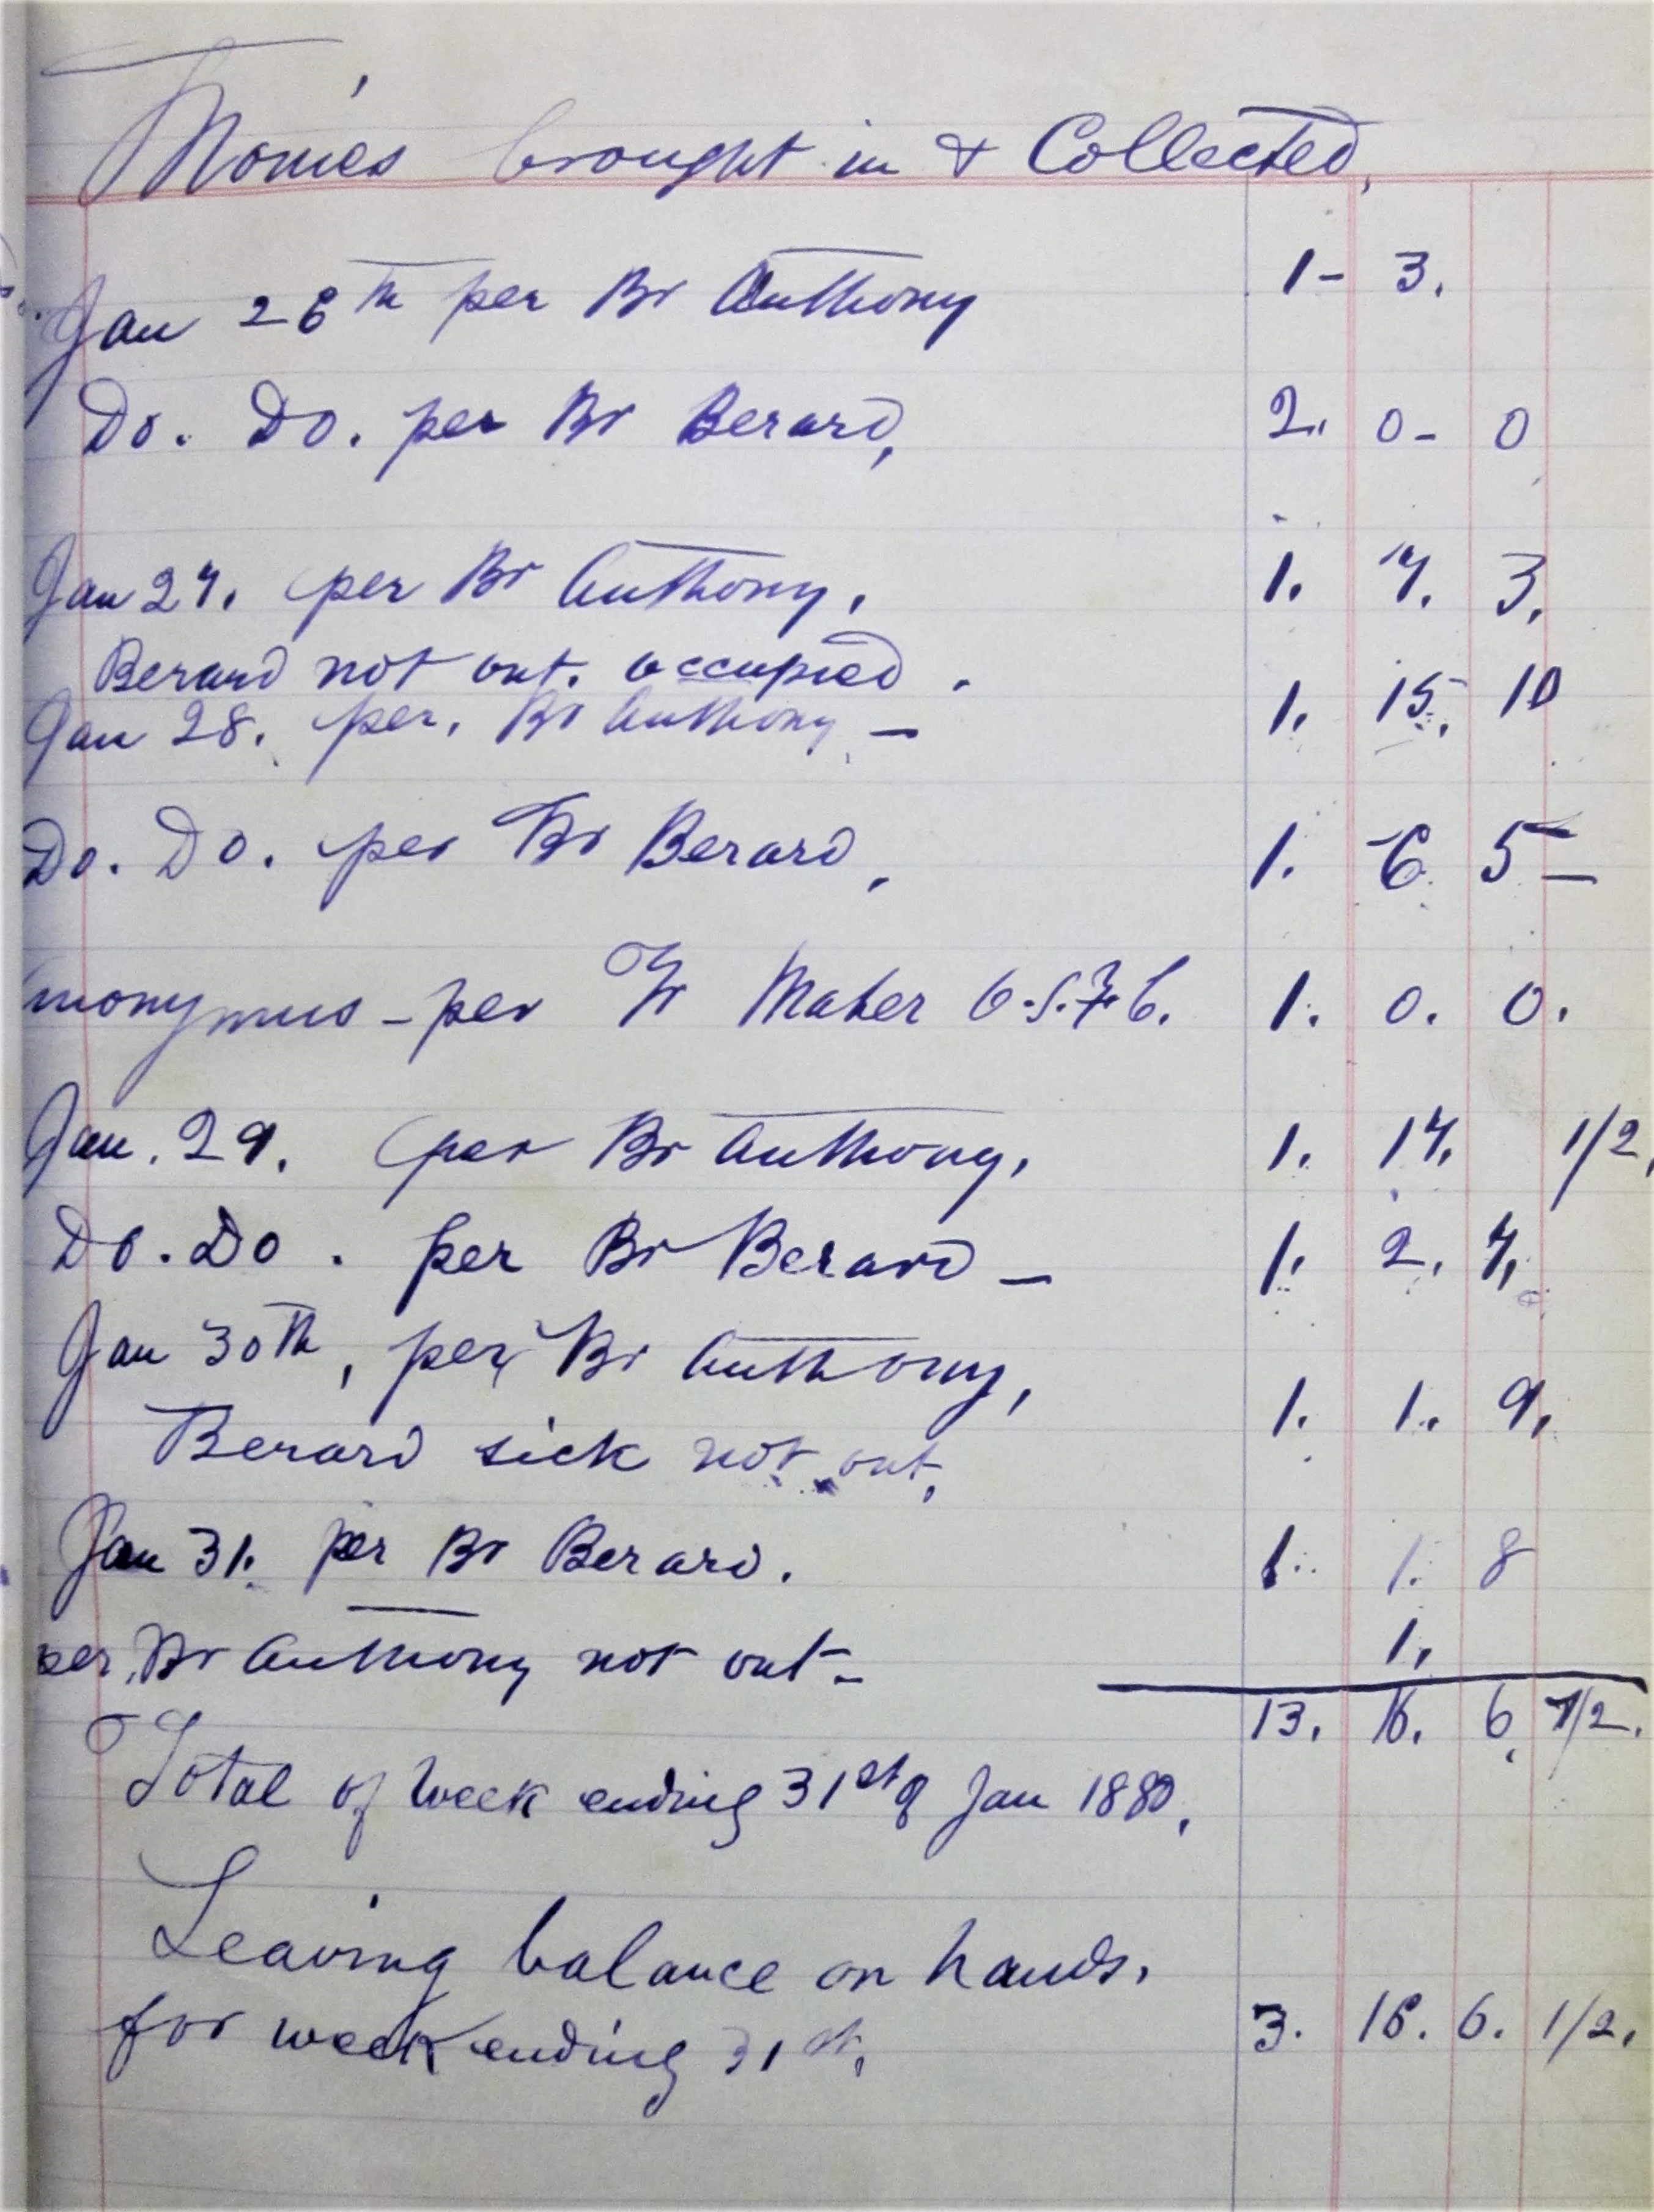 Monies brought in & Collected,
Jan 26th per Br Anthony 1- 3.
Do. Do. per Br Berard, 2. 0- 0
Jan 27. per Br Anthony. 1. 7. 3.
Berard not out. occupied.
Jan 28. per. Br Anthony - 1. 15. 10
Do. Do. per Br Berard, 1. 6 5 -
Anonymus - per Fr Maher O.S.F.C. 1. 0. 0.
Jan. 29. per Br Anthony, 1. 17. 1/2.
Do. Do. per Br Berard - 1. 2. 7.
Jan 30th, per Br Anthony, 1. 1. 9.
Berard sick not out,
Jan 31. per Br Berard. 1. 1. 8
per. Br Anthony not out - 1.
13. 16. 6. 1/2.
Total of week ending 31st of Jan 1880.
Leaving balance on hands.
for week ending 31st. 3. 16. 6. 1/2.